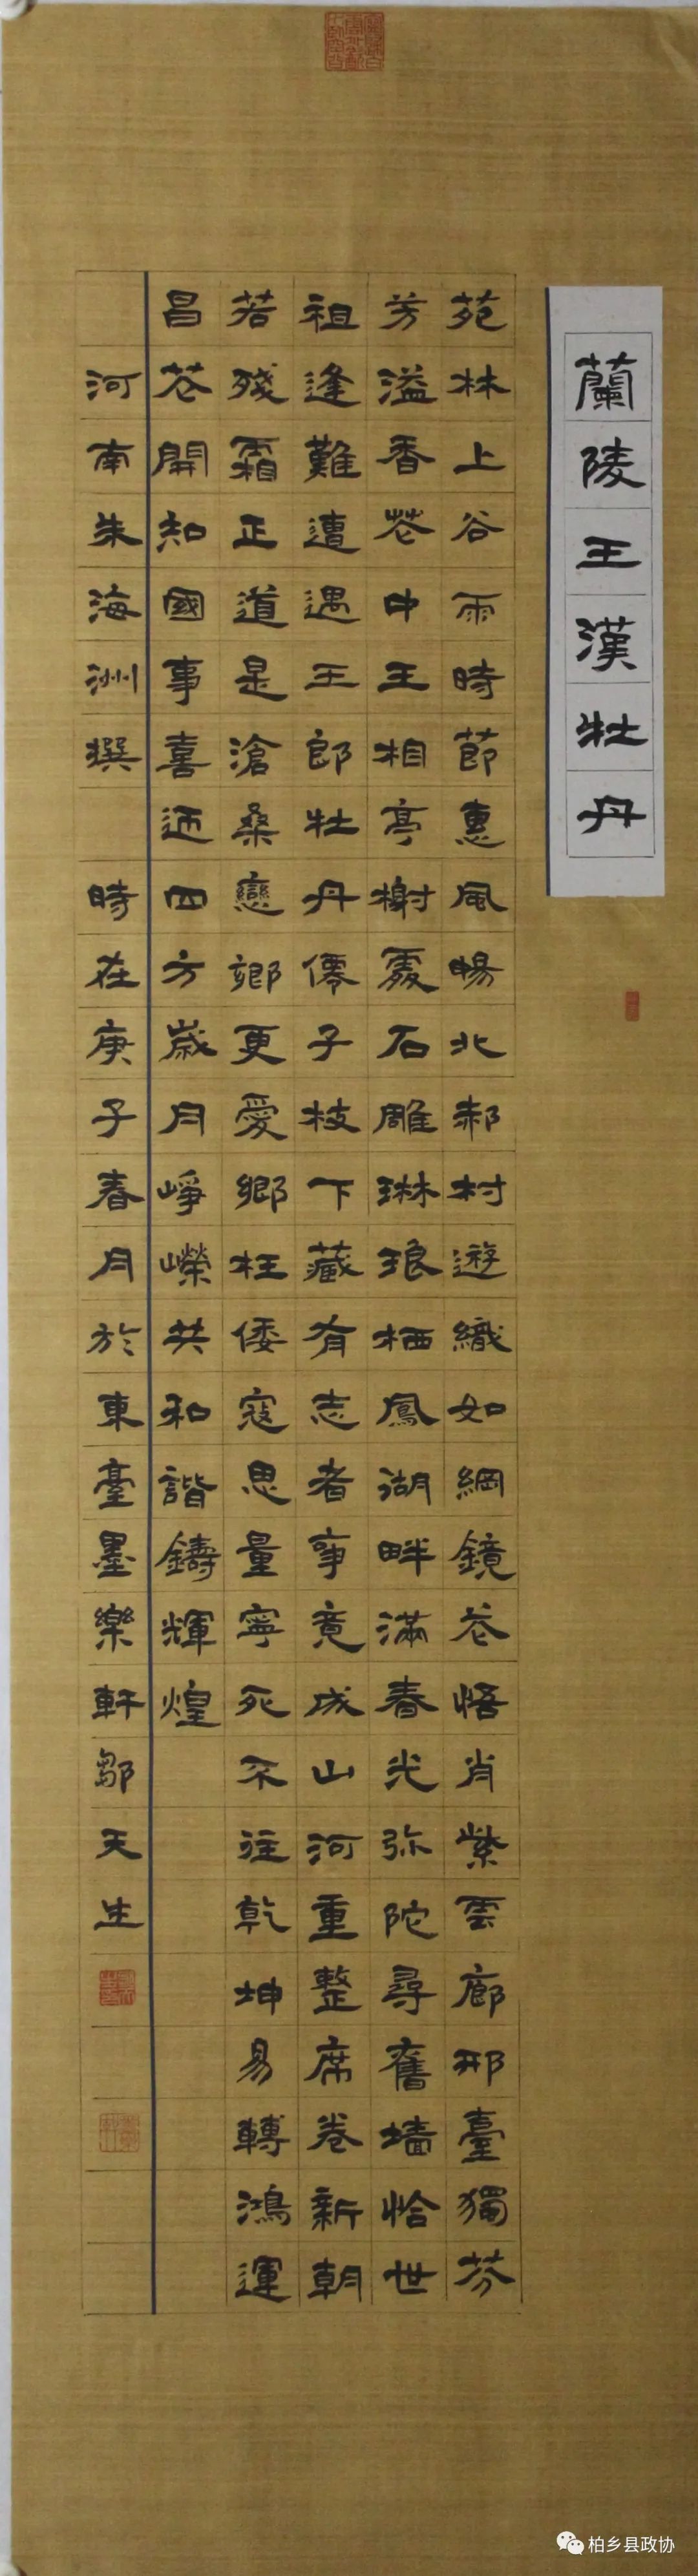 蘭陵王漢牡丹
苑林上谷雨時節惠風暢北郝村遊織如綱鏡花悟肖紫雲廊邢臺獨芬
芳溢香花中王相亭榭霞石雕琳琅栖鳳湖畔滿春光弥陀尋舊墙恰世
祖逢難遭遇王郎牡丹僊子枝下藏有志者事竟成山河重整席卷新朝
若殘霜正道是滄桑戀鄉更愛鄉枉倭寇思量寧死不往乾坤易轉鴻運
昌花開知國事喜迊四方歲月崢嶸共和諧鑄輝煌
河南朱海洲撰 時在庚子春月於東臺墨樂軒鄒天生
柏乡县政协